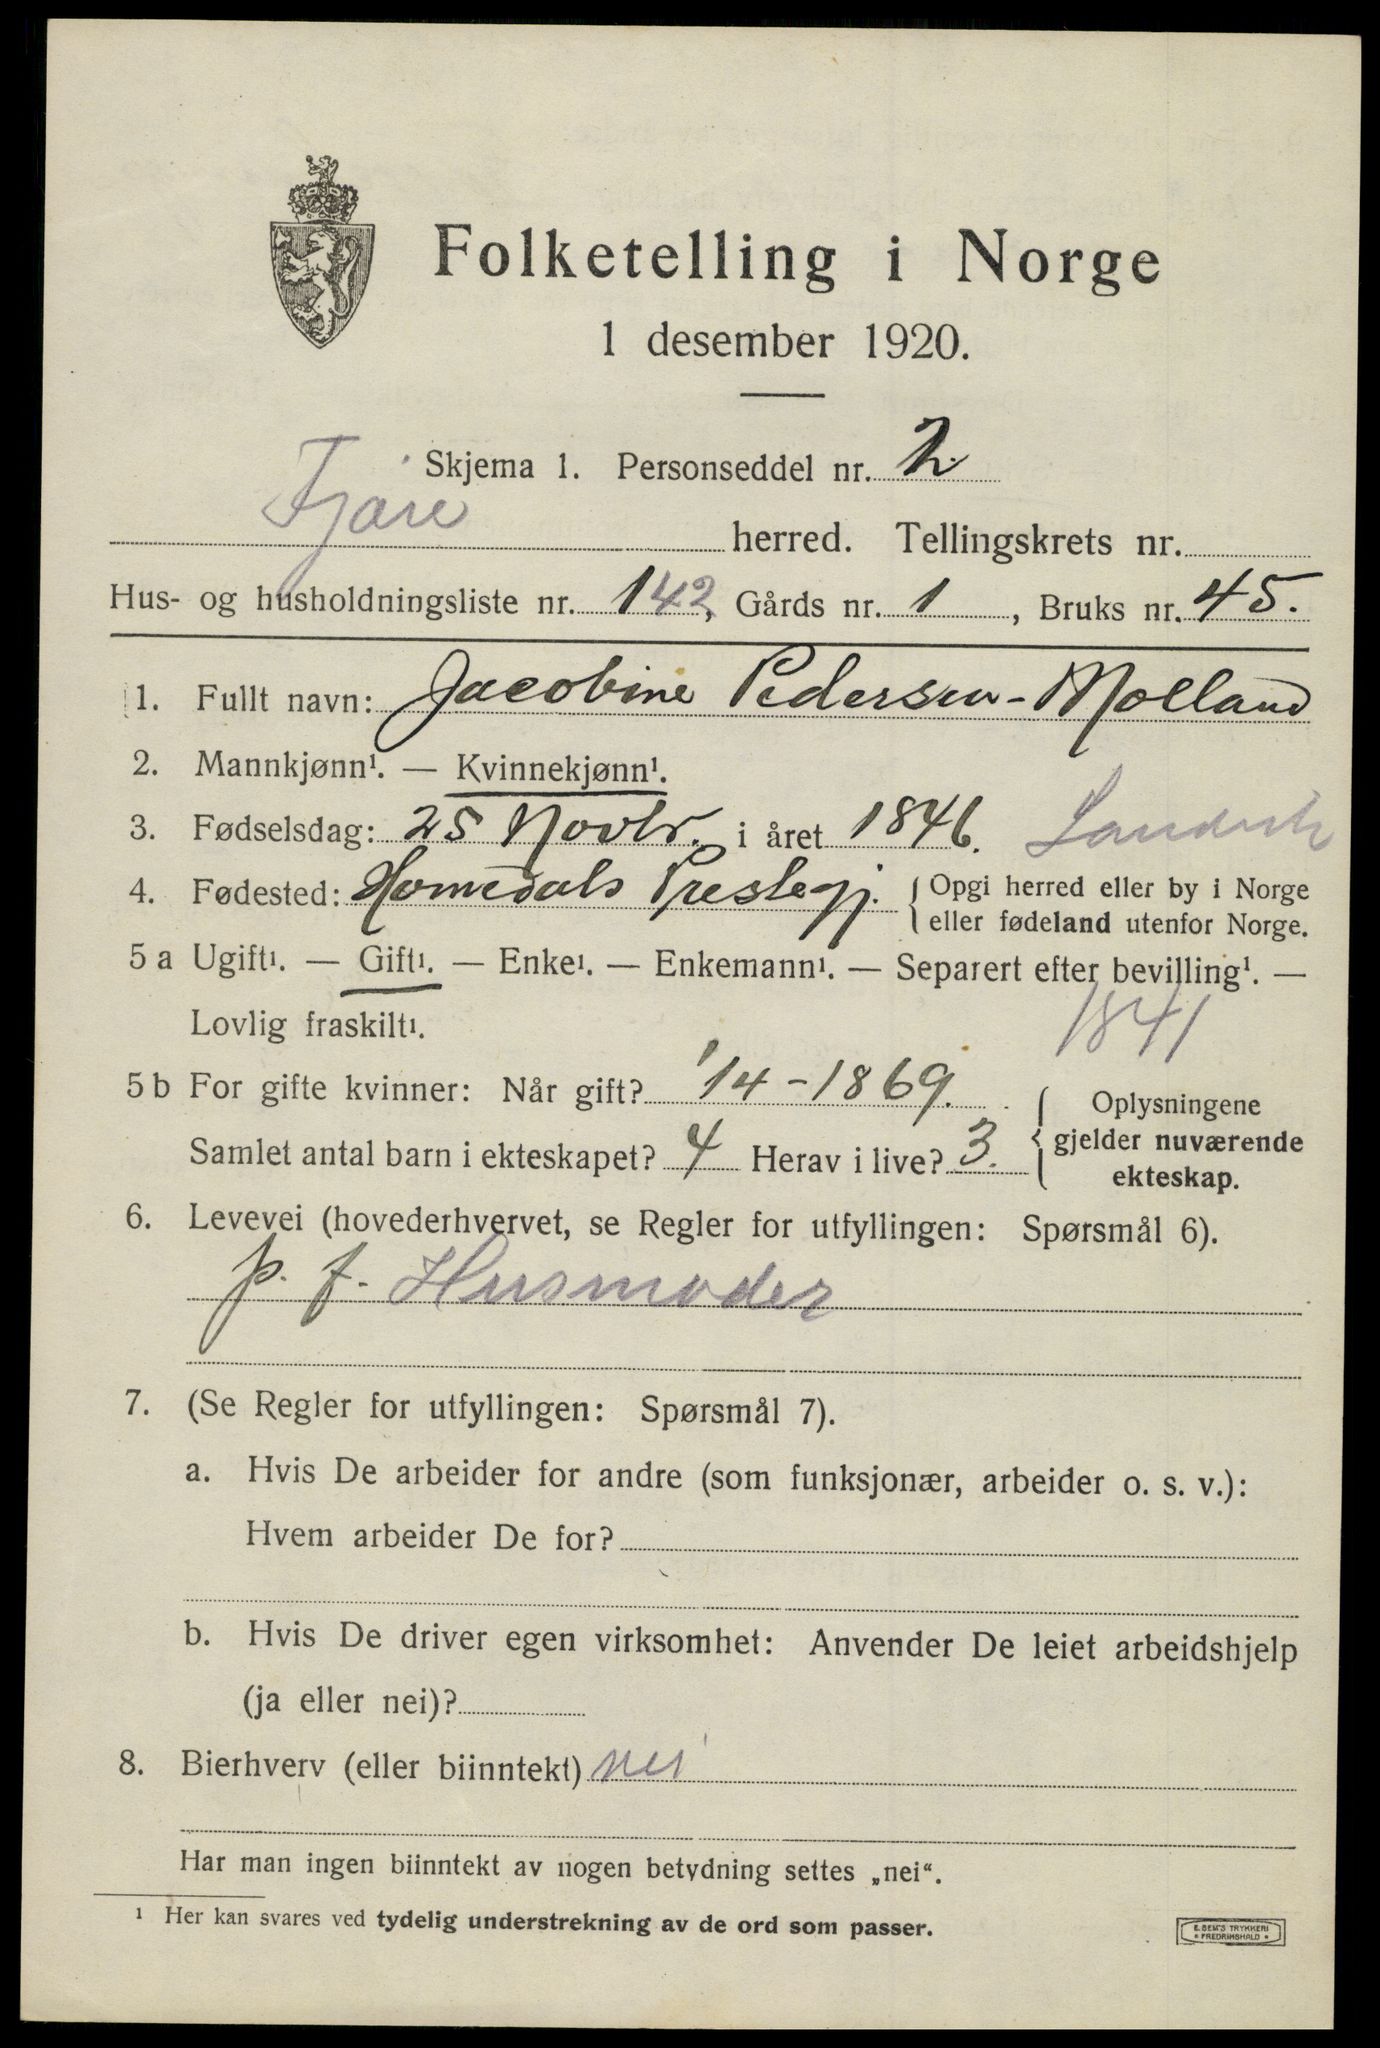 Folketelling i Norge
1 desember 1920.
Skjema 1. Personseddel nr. 2
Fjære herred. Tellingskrets nr.
Hus- og husholdningsliste nr. 142, Gårds nr. 1, Bruks nr. 45.
1. Fullt navn: Jacobine Pedersen-Molland
2. Mannkjønn¹. — Kvinnekjønn¹.
3. Fødselsdag: 25 Novbr. i året 1846. Landvik
4. Fødested: Homedals Prestegj. { Opgi herred eller by i Norge
eller fødeland utenfor Norge.
5 a Ugift¹. — Gift¹. — Enke¹. — Enkemann¹. — Separert efter bevilling¹. —
Lovlig fraskilt¹.
1841
5 b For gifte kvinner: Når gift? '14-1869. { Oplysningene
Samlet antal barn i ekteskapet? 4 Herav i live? 3. gjelder nuværende
ekteskap.
6. Levevei (hovederhvervet, se Regler for utfyllingen: Spørsmål 6).
p. f. Husmoder
7. (Se Regler for utfyllingen: Spørsmål 7).
a. Hvis De arbeider for andre (som funksjonær, arbeider o. s. v.):
Hvem arbeider De for?
b. Hvis De driver egen virksomhet: Anvender De leiet arbeidshjelp
(ja eller nei)?
8. Bierhverv (eller biinntekt) nei
Har man ingen biinntekt av nogen betydning settes „nei“.
¹ Her kan svares ved tydelig understrekning av de ord som passer.
E. SEM'S TRYKKERI
* FREDRIKSHALD *